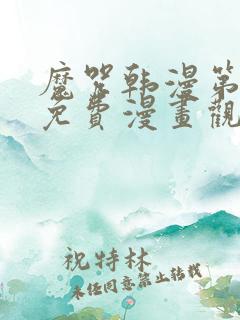 魔咒韩漫第
免費漫畫觀
祝特林
未经同意禁止转载